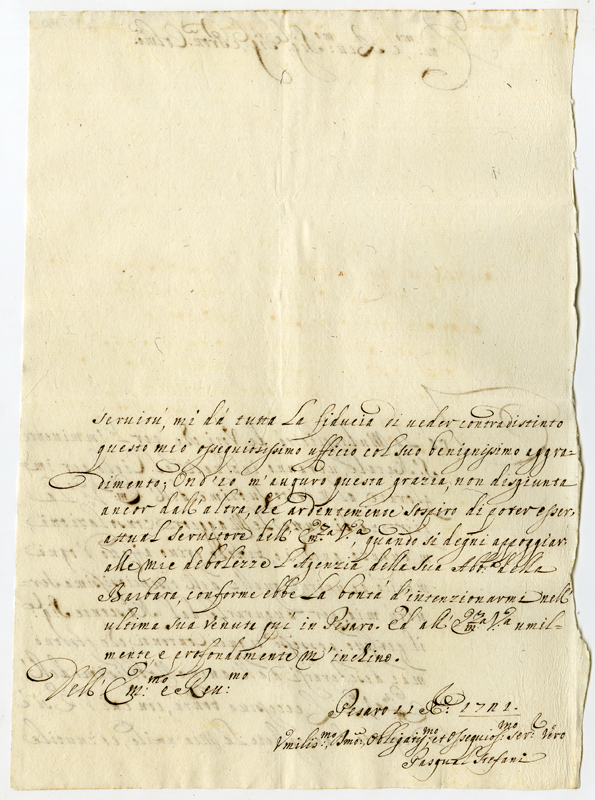 servitù, mi dà tutta la fiducia di veder contradistinto
questo mio ossequiosissimo ufficio col suo benignissimo aggra-
dimento; Ond'io m'auguro questa grazia, non disgiunta
ancor dall'altra, che ardentemente sospiro di poter esser
attual servitore dell' Em:za V:ra, quando si degni appoggiar
alle mie debolezze l'Agenzia della sua Abb:a della
Barbara, conforme ebbe la bontà d'intenzionarmi nell'
ultima sua venuta quì in Pesaro. Ed all' Em:za V:ra umil-
mente, e profondamente m'inchino.
Dell' Em:mo e Rev:mo
Pesaro 11 1741.
Umilis:mo, Obligatis:mo, et Ossequios:mo Ser:e Vero
Pasqual Stefani